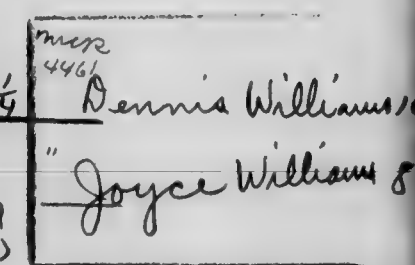 4461
1/4 Dennis Williams
" Joyce Williams 8